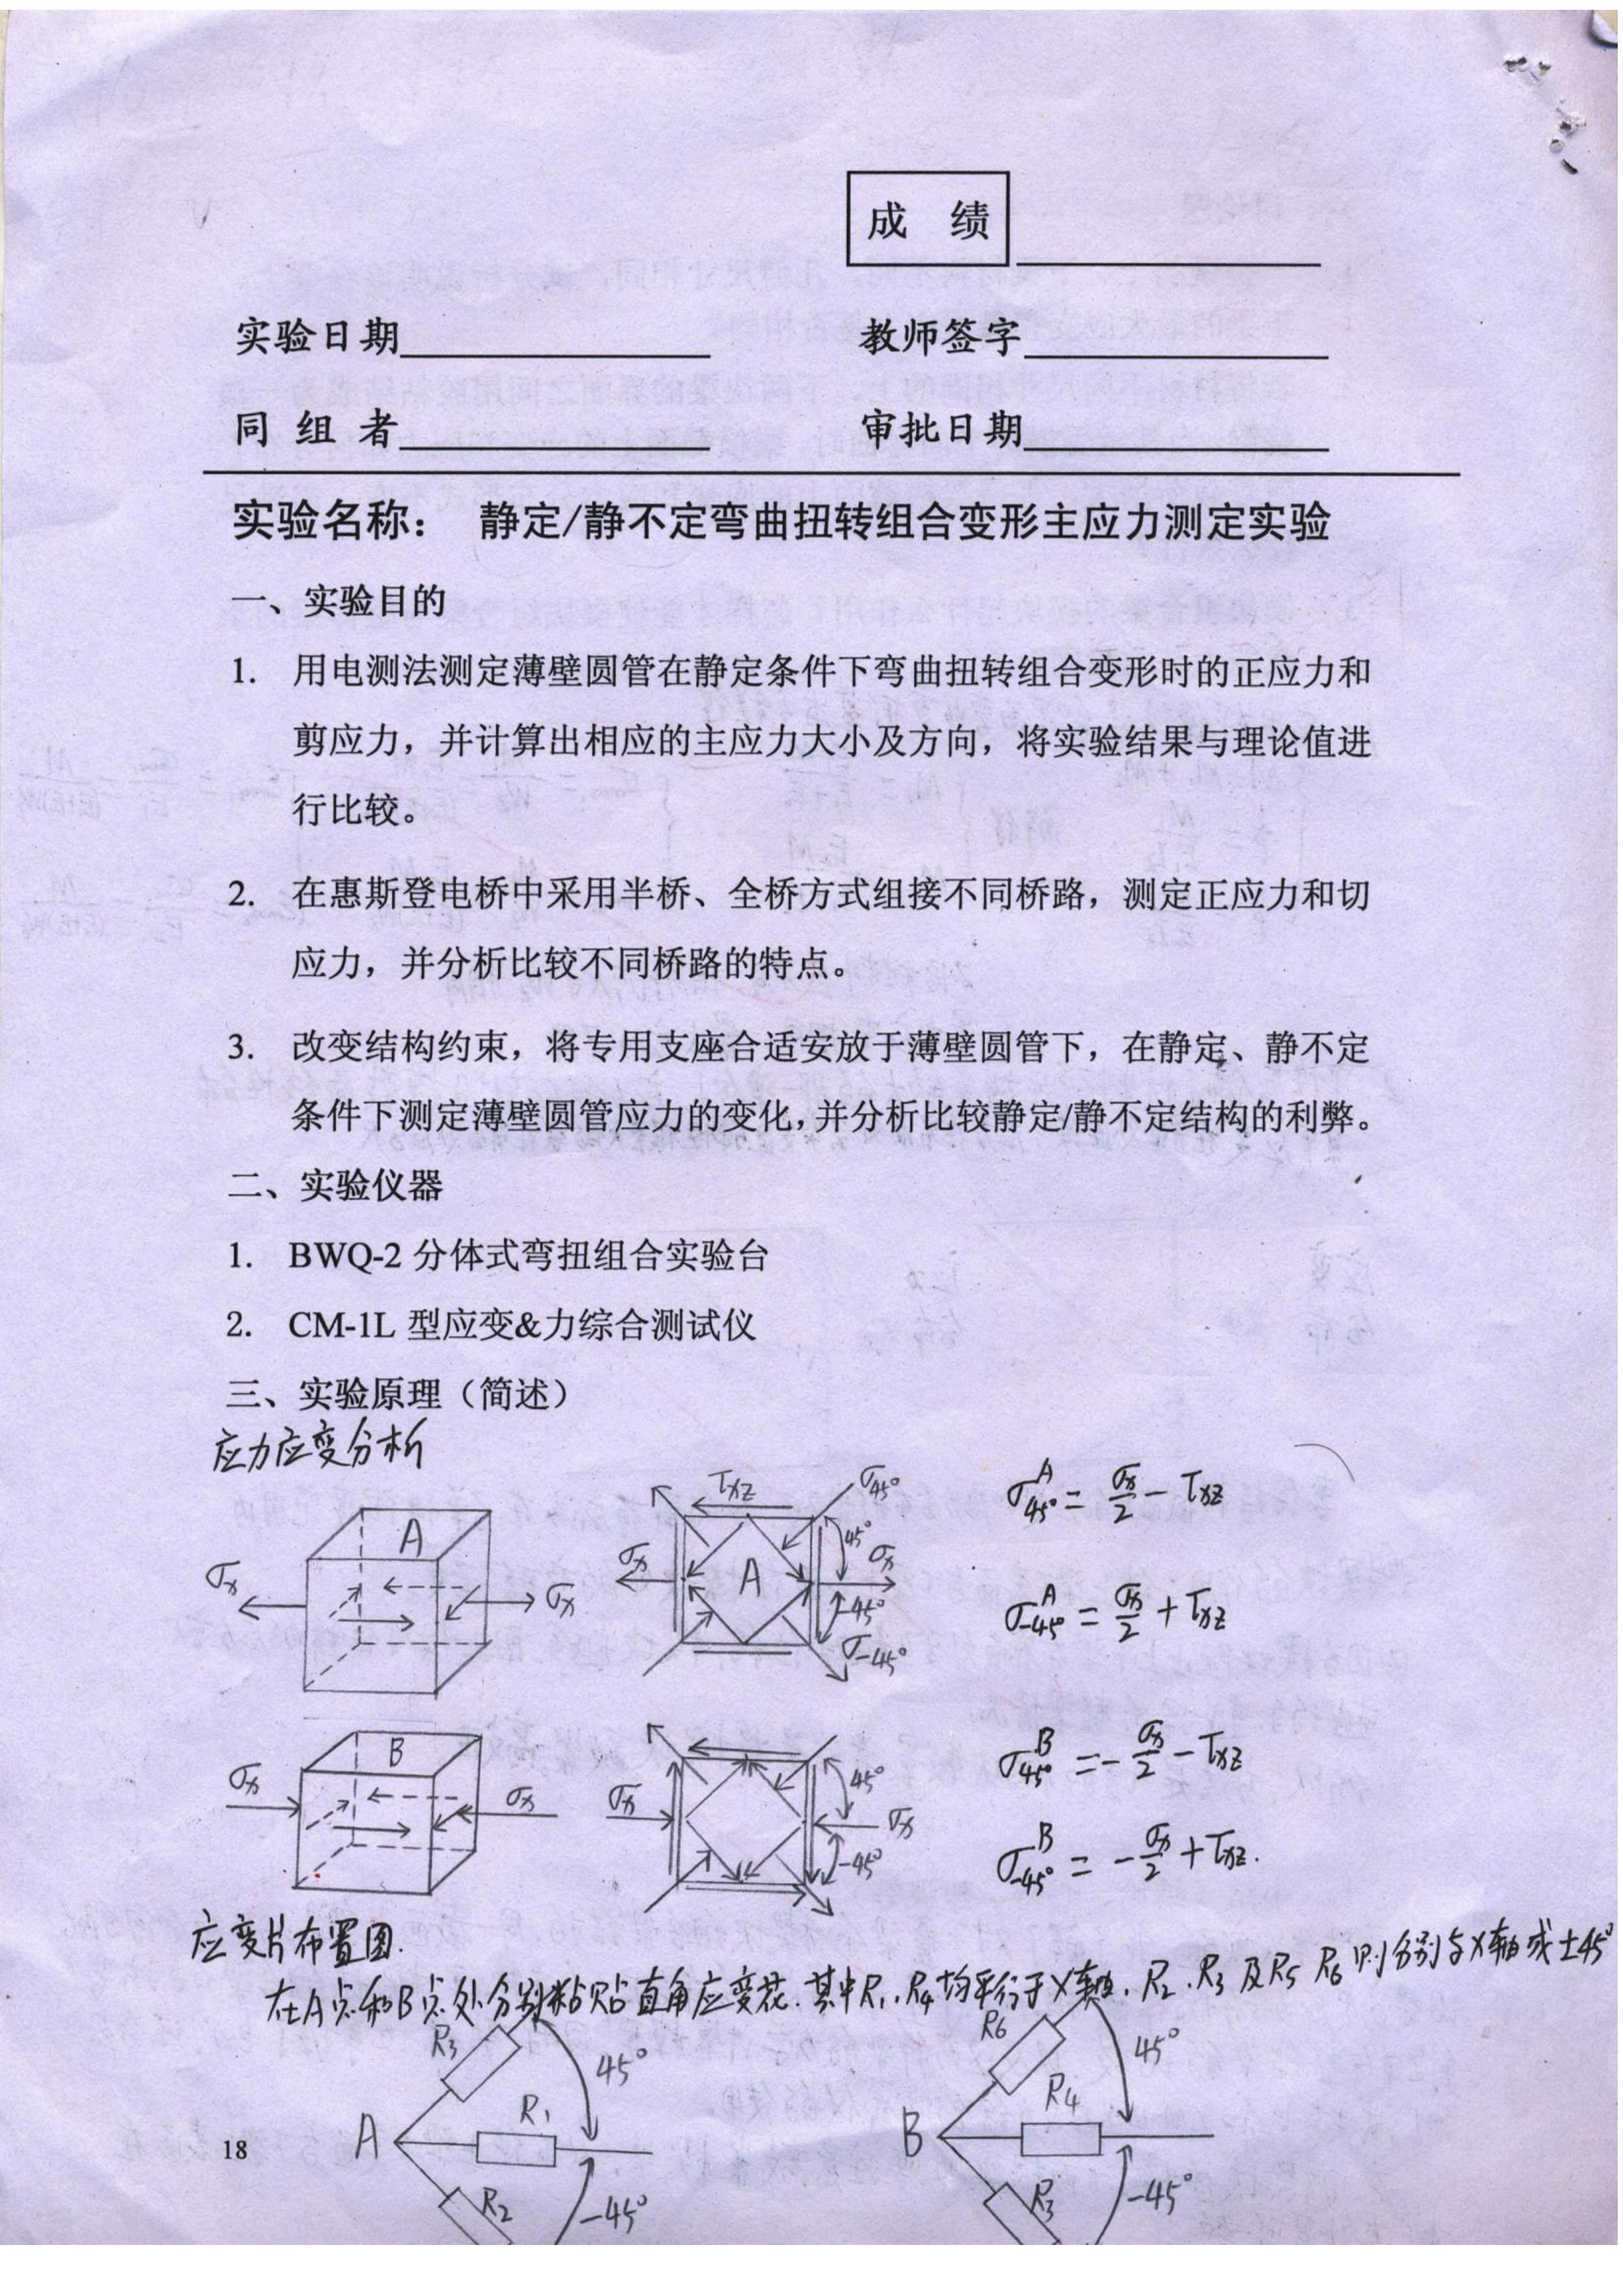 成 绩
实验日期
教师签字
同 组 者
审批日期
实验名称： 静定/静不定弯曲扭转组合变形主应力测定实验
一、实验目的
1. 用电测法测定薄壁圆管在静定条件下弯曲扭转组合变形时的正应力和
剪应力，并计算出相应的主应力大小及方向，将实验结果与理论值进
行比较。
2. 在惠斯登电桥中采用半桥、全桥方式组接不同桥路，测定正应力和切
应力，并分析比较不同桥路的特点。
3. 改变结构约束，将专用支座合适安放于薄壁圆管下，在静定、静不定
条件下测定薄壁圆管应力的变化，并分析比较静定/静不定结构的利弊。
二、实验仪器
1. BWQ-2 分体式弯扭组合实验台
2. CM-1L 型应变&力综合测试仪
三、实验原理（简述）
应力应变分析
A σx σx
τxz σ45° 45° σx σx A -45° σ-45°
σ45°^A = σx/2 - τxz
σ-45°^A = σx/2 + τxz
B σx σx
σx 45° σx -45°
σ45°^B = -σx/2 - τxz
σ-45°^B = -σx/2 + τxz.
应变片布置图.
在A点和B点处分别粘贴直角应变花.其中R1.R4均平行于X轴.R2.R3及R5 R6则分别与X轴成±45°
A R3 R1 R2 45° -45°
B R6 R4 R3 45° -45°
18